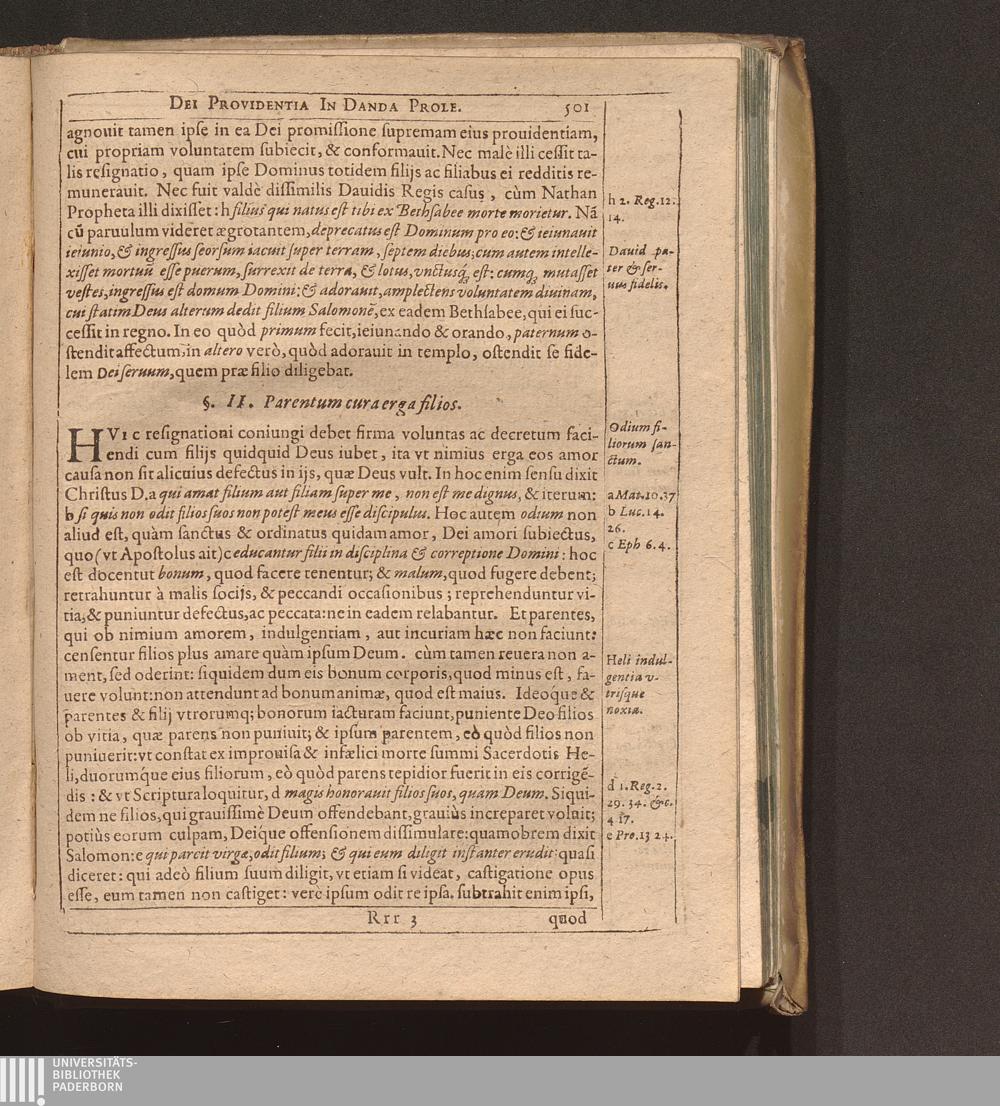 DEI PROVIDENTIA IN DANDA PROLE. 501
agnouit tamen ipſe in ea Dei promiſſione ſupremam eius prouidentiam,
cui propriam voluntatem ſubiecit, & conformauit. Nec malè illi ceſſit ta-
lis reſignatio, quam ipſe Dominus totidem filijs ac filiabus ei redditis re-
munerauit. Nec fuit valdè diſſimilis Dauidis Regis caſus, cùm Nathan
Propheta illi dixiſſet: h filius qui natus eſt tibi ex Bethſabee morte morietur. Nã
cũ paruulum videret ægrotantem, deprecatus eſt Dominum pro eo: & ieiunauit
ieiunio, & ingreſſus ſeorſum iacuit ſuper terram, ſeptem diebus; cum autem intelle-
xiſſet mortuũ eſſe puerum, ſurrexit de terra, & lotus, vnctusq́; eſt: cumq; mutaſſet
veſtes, ingreſſus eſt domum Domini: & adorauit, amplectens voluntatem diuinam,
cui ſtatim Deus alterum dedit filium Salomonē, ex eadem Bethſabee, qui ei ſuc-
ceſſit in regno. In eo quòd primum fecit, ieiunando & orando, paternum o-
ſtendit affectum, in altero verò, quòd adorauit in templo, oſtendit ſe fide-
lem Dei ſeruum, quem præ filio diligebat.
h 2. Reg. 12.
14.
Dauid pa-
ter & ſer-
uus fidelis.
§. II. Parentum cura erga filios.
HVIC reſignationi coniungi debet firma voluntas ac decretum faci-
endi cum filijs quidquid Deus iubet, ita vt nimius erga eos amor
cauſa non ſit alicuius defectus in ijs, quæ Deus vult. In hoc enim ſenſu dixit
Chriſtus D. a qui amat filium aut filiam ſuper me, non eſt me dignus, & iterum:
b ſi quis non odit filios ſuos non poteſt meus eſſe diſcipulus. Hoc autem odium non
aliud eſt, quàm ſanctus & ordinatus quidam amor, Dei amori ſubiectus,
quo (vt Apoſtolus ait) c educantur filii in diſciplina & correptione Domini: hoc
eſt docentut bonum, quod facere tenentur; & malum, quod fugere debent;
retrahuntur à malis ſocijs, & peccandi occaſionibus; reprehenduntur vi-
tia, & puniuntur defectus, ac peccata: ne in eadem relabantur. Et parentes,
qui ob nimium amorem, indulgentiam, aut incuriam hæc non faciunt:
cenſentur filios plus amare quàm ipſum Deum. cùm tamen reuera non a-
ment, ſed oderint: ſiquidem dum eis bonum corporis, quod minus eſt, fa-
uere volunt: non attendunt ad bonum animæ, quod eſt maius. Ideoque &
parentes & filij vtrorumq; bonorum iacturam faciunt, puniente Deo filios
ob vitia, quæ parens non puniuit; & ipſum parentem, eò quòd filios non
puniuerit: vt conſtat ex improuiſa & infælici morte ſummi Sacerdotis He-
li, duorumq́ue eius filiorum, eò quòd parens tepidior fuerit in eis corrigẽ-
dis: & vt Scriptura loquitur, d magis honorauit filios ſuos, quàm Deum. Siqui-
dem ne filios, qui grauiſſimè Deum offendebant, grauiùs increparet voluit;
potiùs eorum culpam, Deique offenſionem diſſimulare: quamobrem dixit
Salomon: e qui parcit virgæ, odit filium; & qui eum diligit inſtanter erudit: quaſi
diceret: qui adeò filium ſuum diligit, vt etiam ſi videat, caſtigatione opus
eſſe, eum tamen non caſtiget: verè ipſum odit re ipſa. ſubtrahit enim ipſi,
Odium fi-
liorum ſan-
ctum.
a Mat. 10. 37
b Luc. 14.
26.
c Eph 6. 4.
Heli indul-
gentia v-
triſque
noxia.
d 1. Reg. 2.
29. 34. &c.
4 17.
e Pro. 13 24.
Rrr 3 quod
UNIVERSITÄTS-
BIBLIOTHEK
PADERBORN